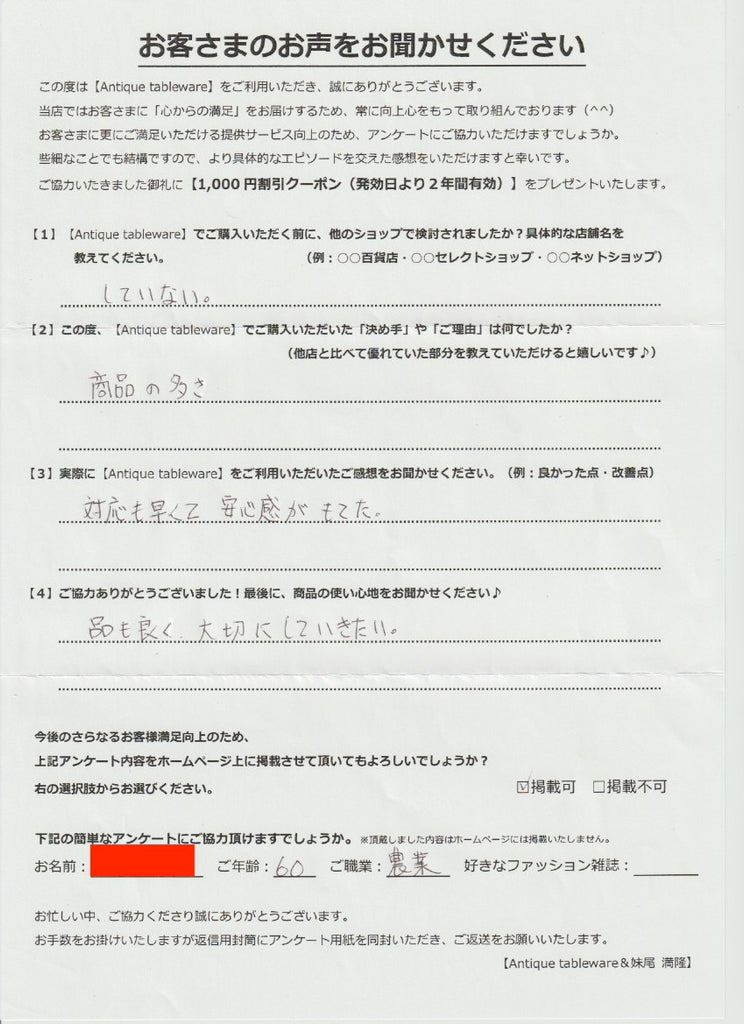 お客さまのお声をお聞かせください
この度は【Antique tableware】をご利用いただき、誠にありがとうございます。
当店ではお客さまに「心からの満足」をお届けするため、常に向上心をもって取り組んでおります（^^）
お客さまに更にご満足いただける提供サービス向上のため、アンケートにご協力いただけますでしょうか。
些細なことでも結構ですので、より具体的なエピソードを交えた感想をいただけますと幸いです。
ご協力いたきました御礼に【1,000 円割引クーポン（発効日より２年間有効）】をプレゼントいたします。
【１】【Antique tableware】でご購入いただく前に、他のショップで検討されましたか？具体的な店舗名を
教えてください。（例：○○百貨店・○○セレクトショップ・○○ネットショップ）
していない。
【２】この度、【Antique tableware】でご購入いただいた「決め手」や「ご理由」は何でしたか？
（他店と比べて優れていた部分を教えていただけると嬉しいです♪）
商品の多さ
【３】実際に【Antique tableware】をご利用いただいたご感想をお聞かせください。（例：良かった点・改善点）
対応も早くて 安心感がもてた。
【４】ご協力ありがとうございました！最後に、商品の使い心地をお聞かせください♪
品も良く、大切にしていきたい。
今後のさらなるお客様満足向上のため、
上記アンケート内容をホームページ上に掲載させて頂いてもよろしいでしょうか？
右の選択肢からお選びください。 ☑掲載可 □掲載不可
下記の簡単なアンケートにご協力頂けますでしょうか。※頂戴しました内容はホームページには掲載いたしません。
お名前： ご年齢：60 ご職業：農業 好きなファッション雑誌：
お忙しい中、ご協力くださり誠にありがとうございます。
お手数をお掛けいたしますが返信用封筒にアンケート用紙を同封いただき、ご返送をお願いいたします。
【Antique tableware＆妹尾 満隆】